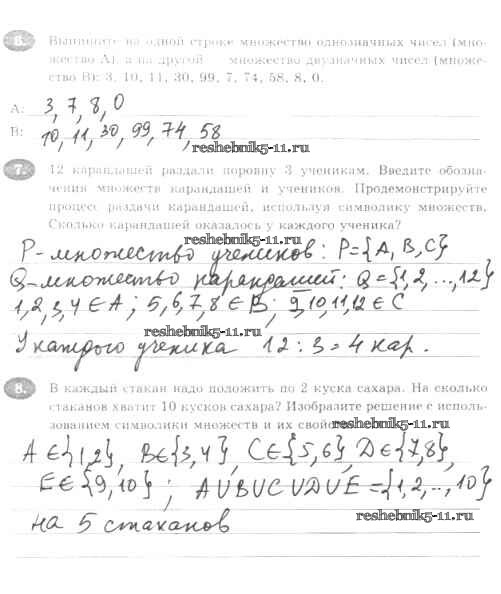 6. Выпишите на одной строке множество однозначных чисел (мно-
жество A), а на другой — множество двузначных чисел (множе-
ство B): 3, 10, 11, 30, 99, 7, 74, 58, 8, 0.
A: 3, 7, 8, 0
B: 10, 11, 30, 99, 74, 58
reshebnik5-11.ru
7. 12 карандашей раздали поровну 3 ученикам. Введите обозна-
чения множеств карандашей и учеников. Продемонстрируйте
процесс раздачи карандашей, используя символику множеств.
Сколько карандашей оказалось у каждого ученика?
reshebnik5-11.ru
P-множество учеников: P={A, B, C}
Q-множество карандашей: Q={1,2,...,12}
1,2,3,4 ∈ A; 5,6,7,8 ∈ B; 9,10,11,12 ∈ C
reshebnik5-11.ru
У каждого ученика 12 : 3 = 4 кар.
8. В каждый стакан надо положить по 2 куска сахара. На сколько
стаканов хватит 10 кусков сахара? Изобразите решение с исполь-
зованием символики множеств и их свойс
reshebnik5-11.ru
A ∈ {1,2}, B ∈ {3,4}, C ∈ {5,6}, D ∈ {7,8},
E ∈ {9,10}; A∪B∪C∪D∪E = {1,2,..,10}
на 5 стаканов
reshebnik5-11.ru